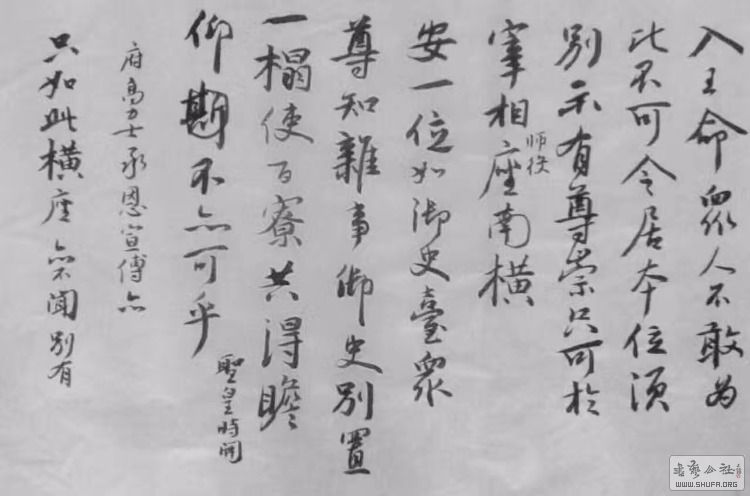 入王命眾人不敢為
比不可令居本位須
別示有尊崇只可於
宰相師保座南橫
安一位如御史臺眾
尊知雜事御史別置
一榻使百寮共得瞻
仰不亦可乎
聖皇時開
府高力士承恩宣傳亦
只如此橫座亦不聞別有
書藝公社
WWW.SHUFA.ORG